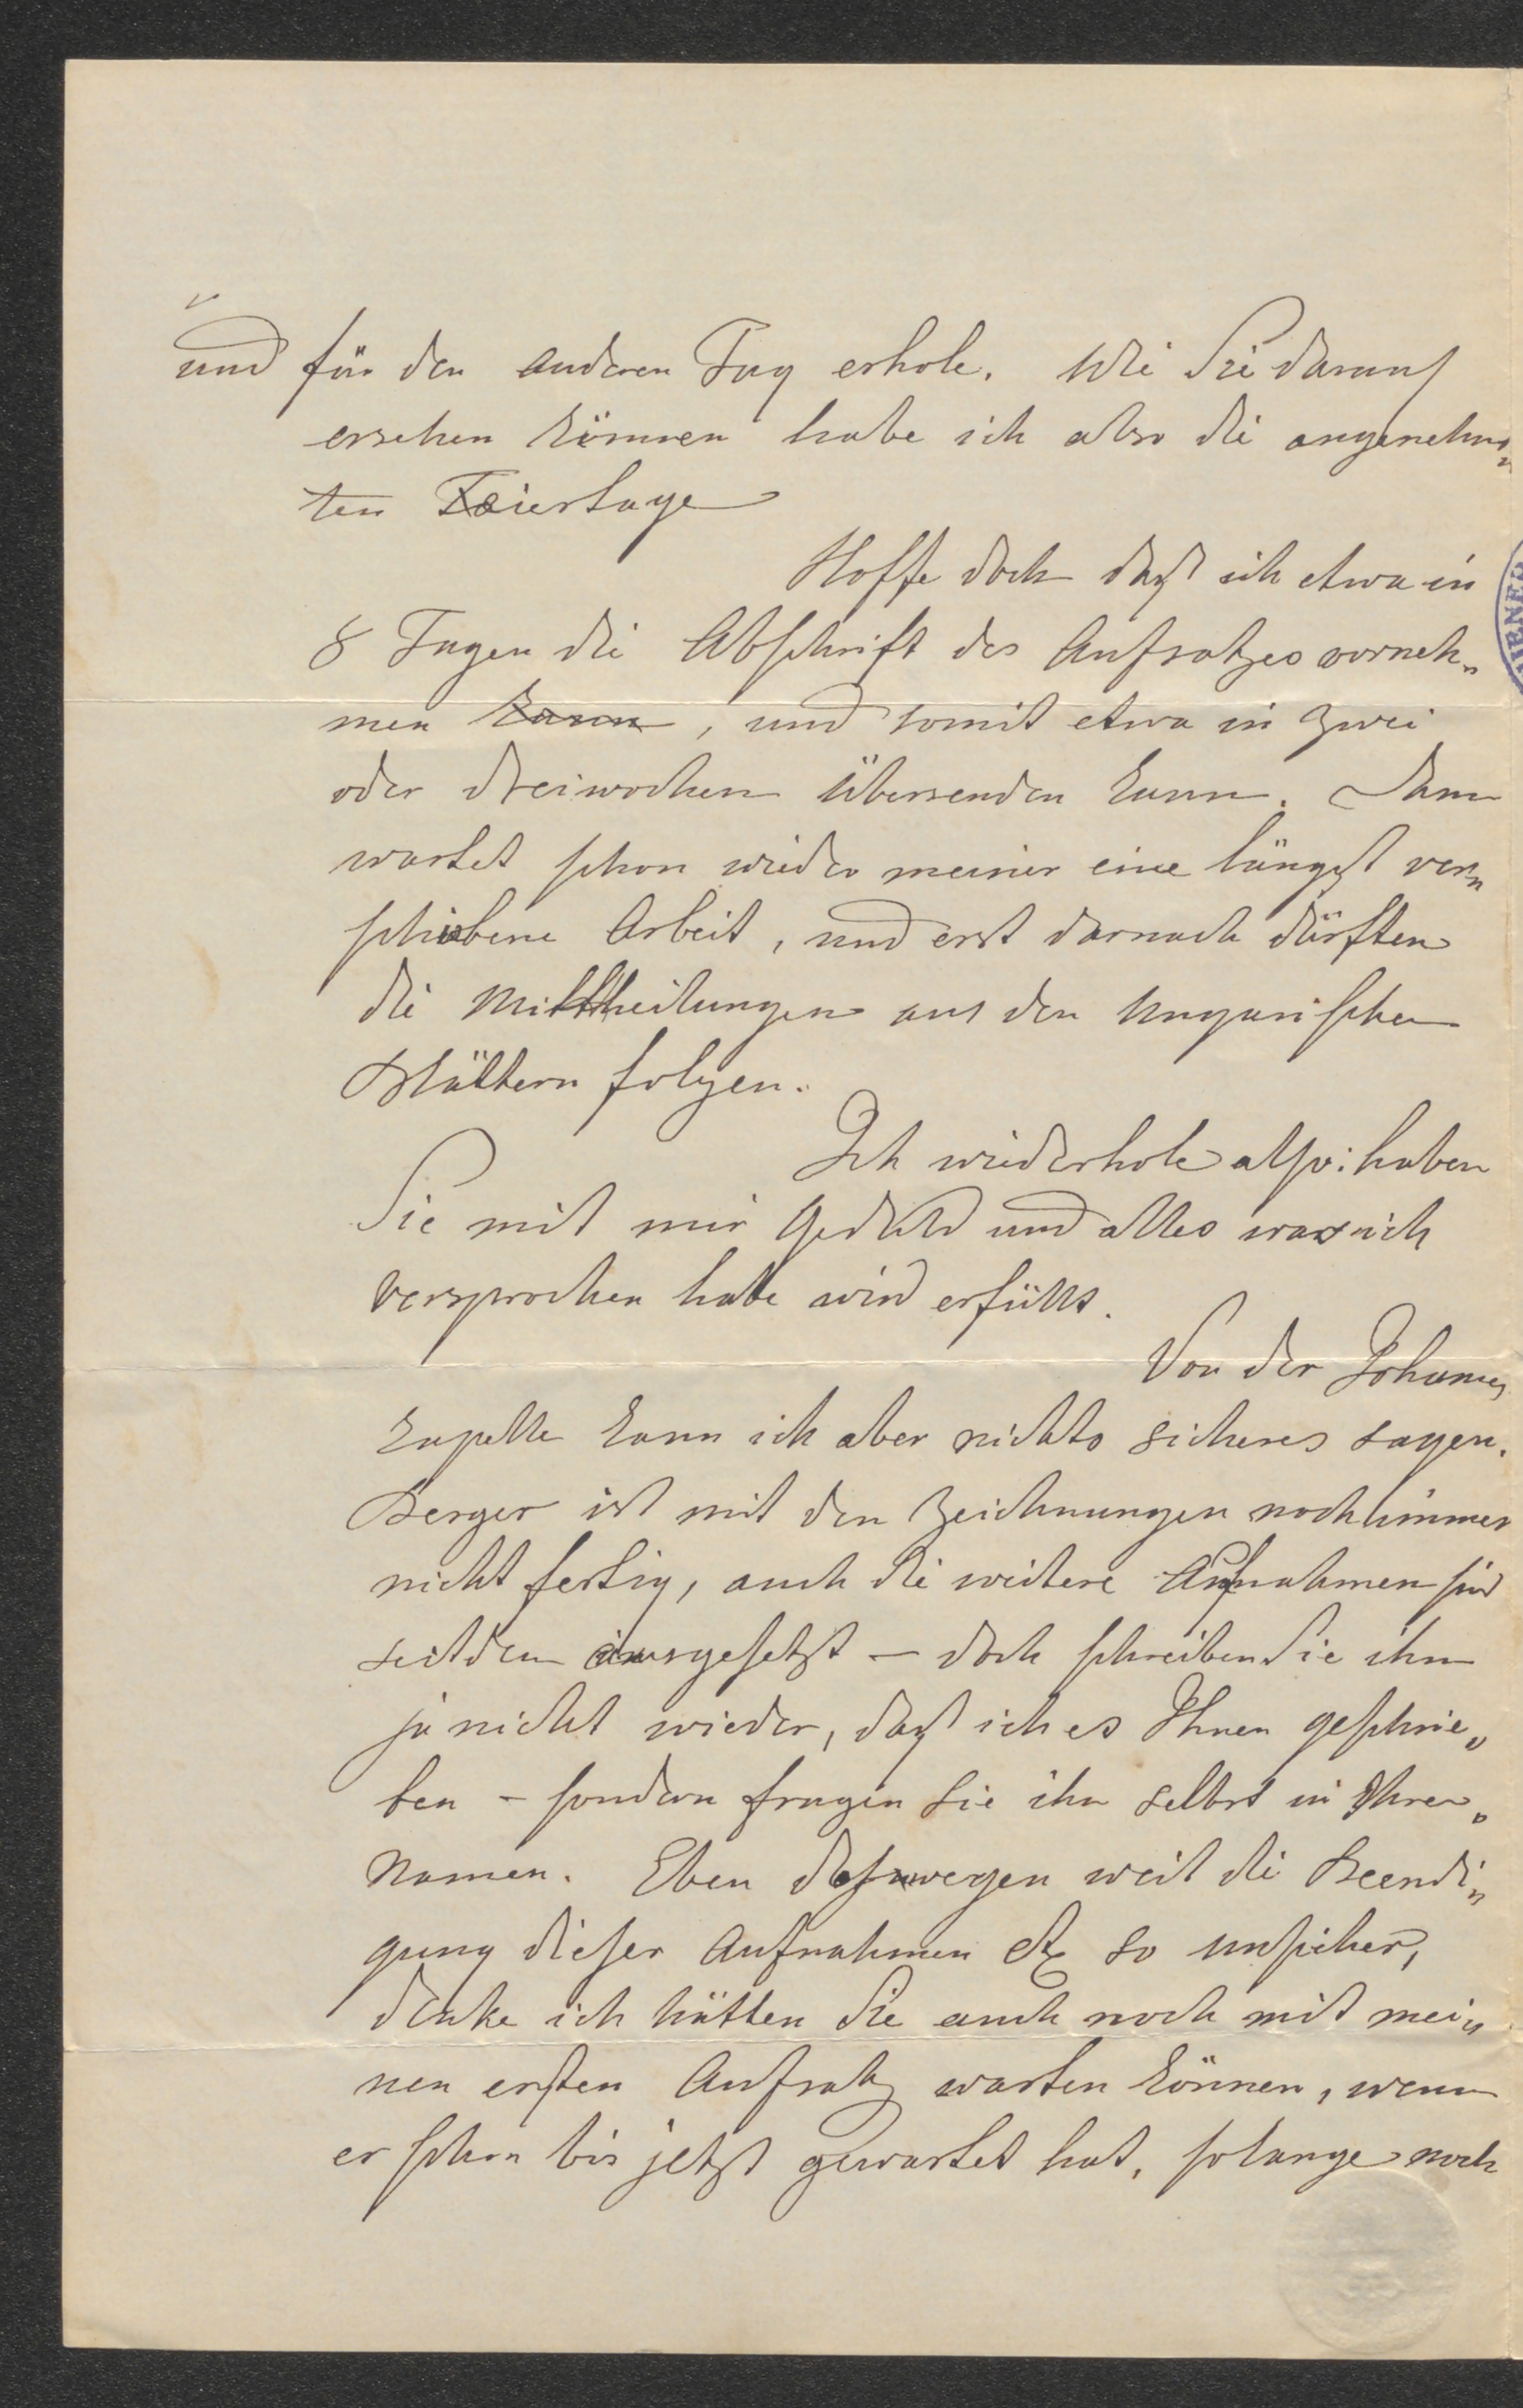 und für den anderen Tag erhole. Wie Sie daraus
ersehen können habe ich also die angenehms„
ten Feiertage
Hoffe doch daß ich etwa in
8 Tagen die Abschrift des Aufsatzes vorneh„
men kann, und somit etwa in zwei
oder dreiwochen übersenden kann. Dann
wartet schon wieder meiner eine längst ver„
schobene Arbeit, und erst darnach dürften
die Mittheilungen aus den Ungarischen
Blättern folgen.
Ich wiederhole also: haben
Sie mit mir Geduld und alles was ich
versprochen habe wird erfüllt.
Von der Johannes
kapelle kann ich aber nichts sicheres sagen.
Berger ist mit den Zeichnungen noch immer
nicht fertig, auch die weitere Aufnahmen sind
seitdem ausgesetzt – doch schreiben Sie ihm
ja nicht wieder, daß ich es Ihnen geschrie„
ben – sondern fragen Sie ihn selbst in Ihren
Namen. Eben deswegen weil die Beendi„
gung dieser Aufnahmen etc so unsicher,
denke ich hätten Sie auch noch mit mei„
nen ersten Aufsatz warten können, wenn
er schon bis jetzt gewartet hat, solange noch